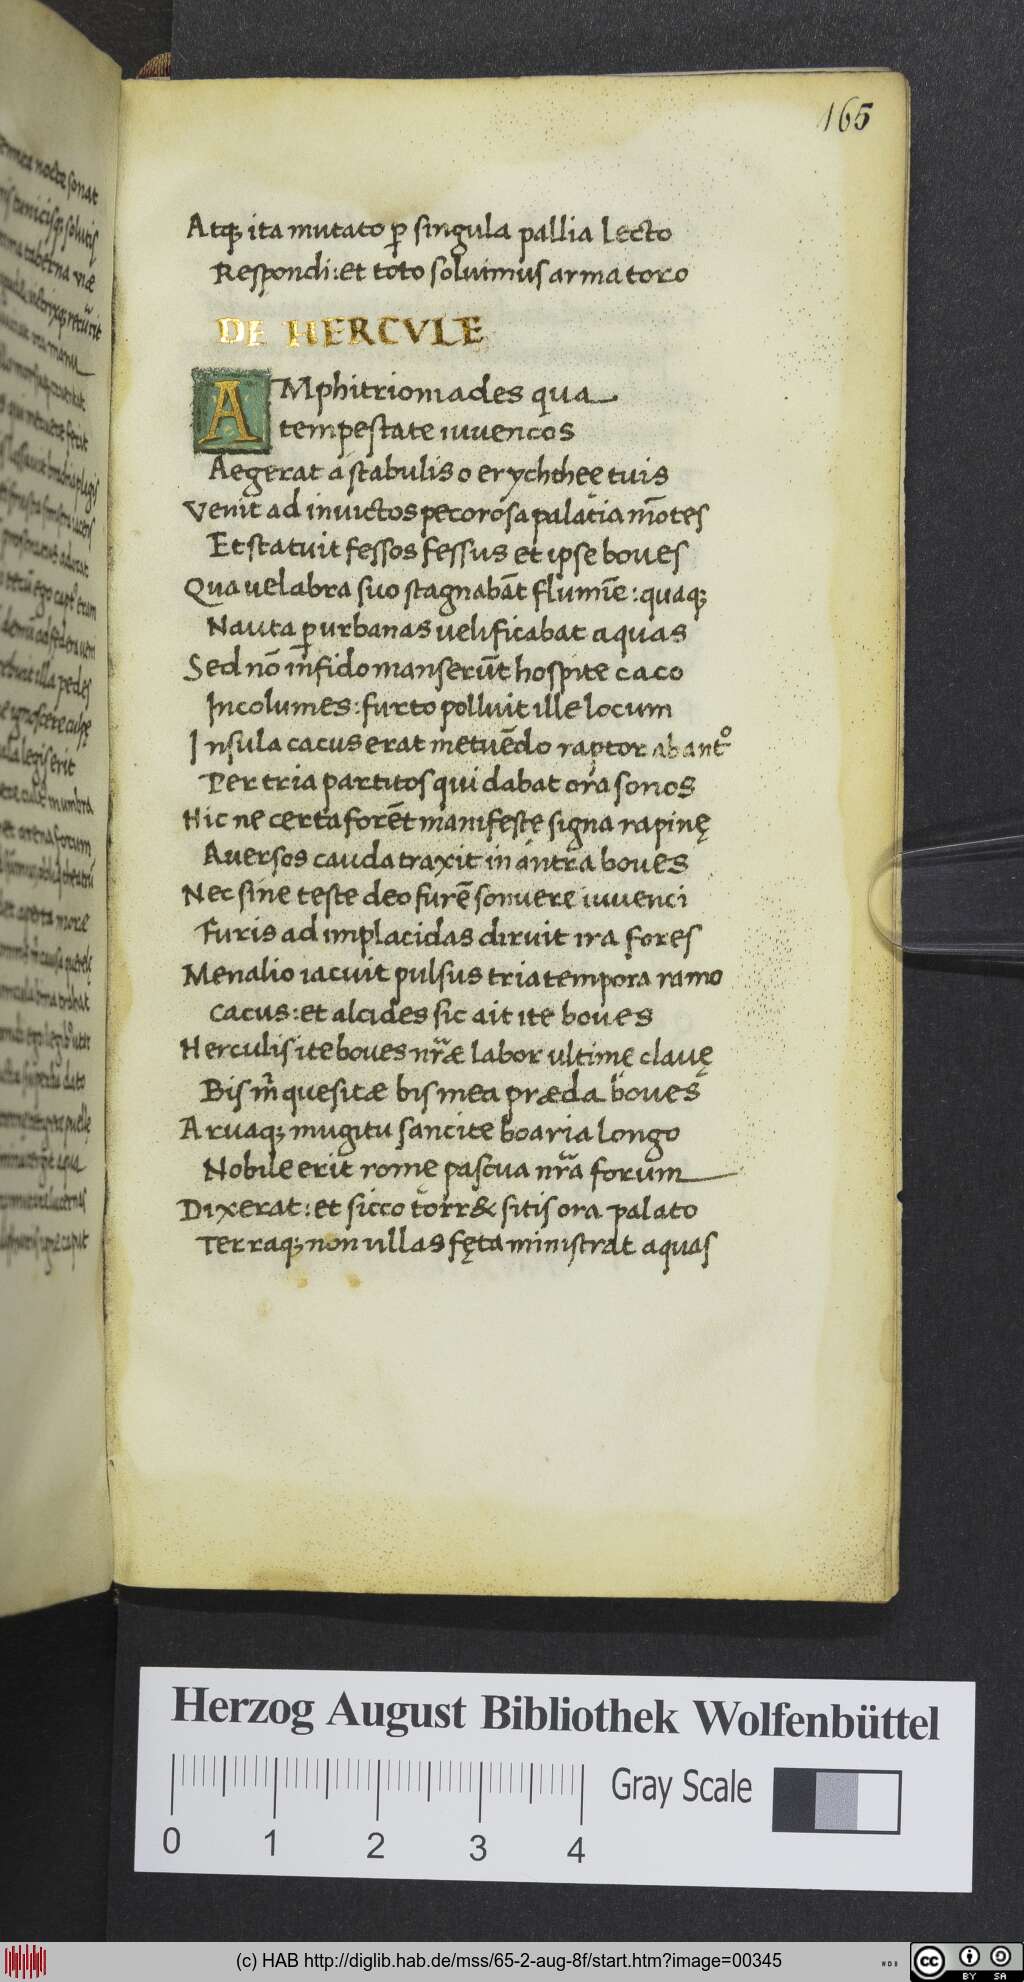 165
Atq; ita mutato ꝑ singula pallia lecto
Respondi: et toto soluimus arma toro
DE HERCVLE
AMphitrioniades qua
tempestate iuuencos
Aegerat a stabulis o erychtheę tuis
Venit ad inuictos pecorosa palatia mōtes
Et statuit fessos fessus et ipse boues
Qua uelabra suo stagnabāt flumīe: quaq;
Nauta ꝑ urbanas uelificabat aquas
Sed nō īnfido manserūt hospite caco
Incolumes: furto polluit ille locum
Insula cacus erat metuēdo raptor ab antº
Per tria partitos qui dabat ora sonos
Hic ne certa forēt manifeste signa rapinę
Auersos cauda traxit in antra boues
Nec sine teste deo furē sonuere iuuenci
Furis ad implacidas diruit ira fores
Menalio iacuit pulsus tria tempora ramo
Cacus: et alcides sic ait ite boues
Herculis ite boues nr̄æ labor ultimę clauę
Bis m̄ quesitæ bis mea præda boues
Aruaq; mugitu sancite boaria longo
Nobile erit romę pascua nr̄a forum
Dixerat: et sicco torr& sitis ora palato
Terraq; non ullas fęta ministrat aquas
Herzog August Bibliothek Wolfenbüttel
Gray Scale
0 1 2 3 4
(c) HAB http://diglib.hab.de/mss/65-2-aug-8f/start.htm?image=00345
cc BY SA